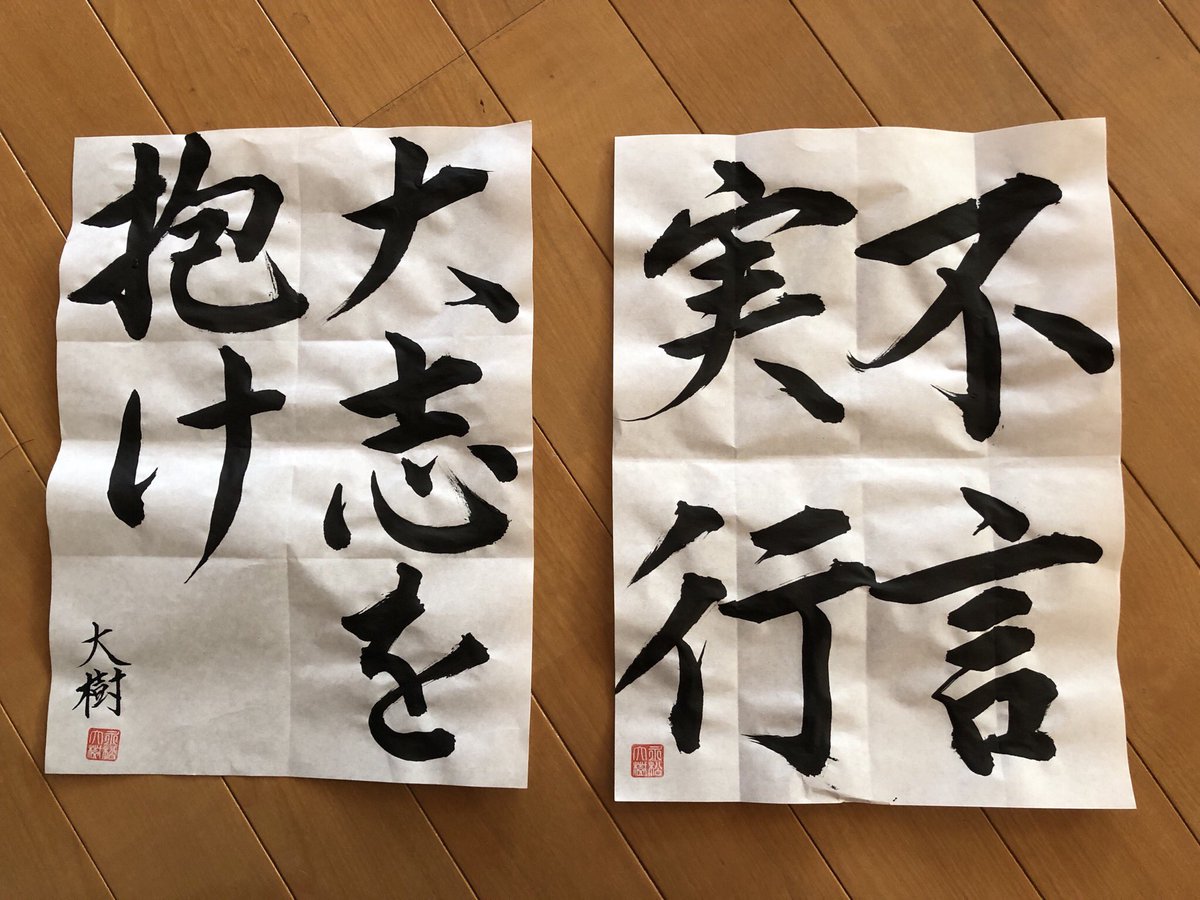 不言
実行
大志を
抱け
大樹